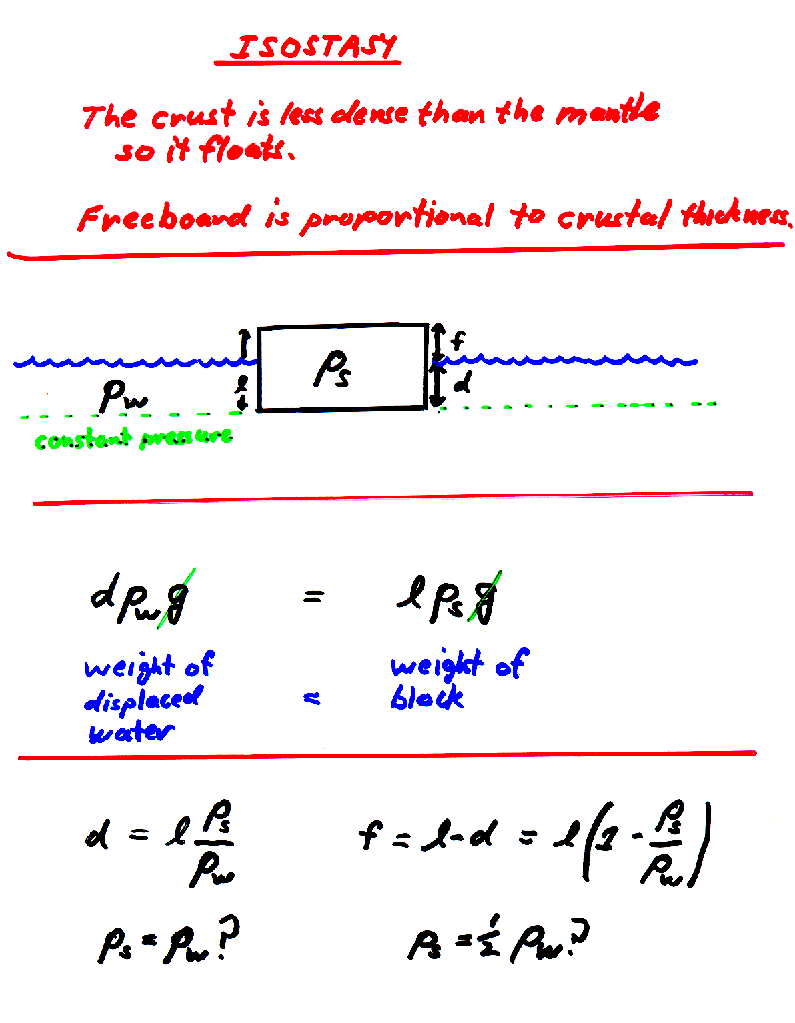 ISOSTASY
The crust is less dense than the mantle
so it floats.
Freeboard is proportional to crustal thickness.
f
ρs
l
d
ρw
constant pressure
dρwg = lρsg
weight of displaced water = weight of block
d = l ρs/ρw
f = l-d = l(1 - ρs/ρw)
ρs = ρw?
ρs = 1/2 ρw?